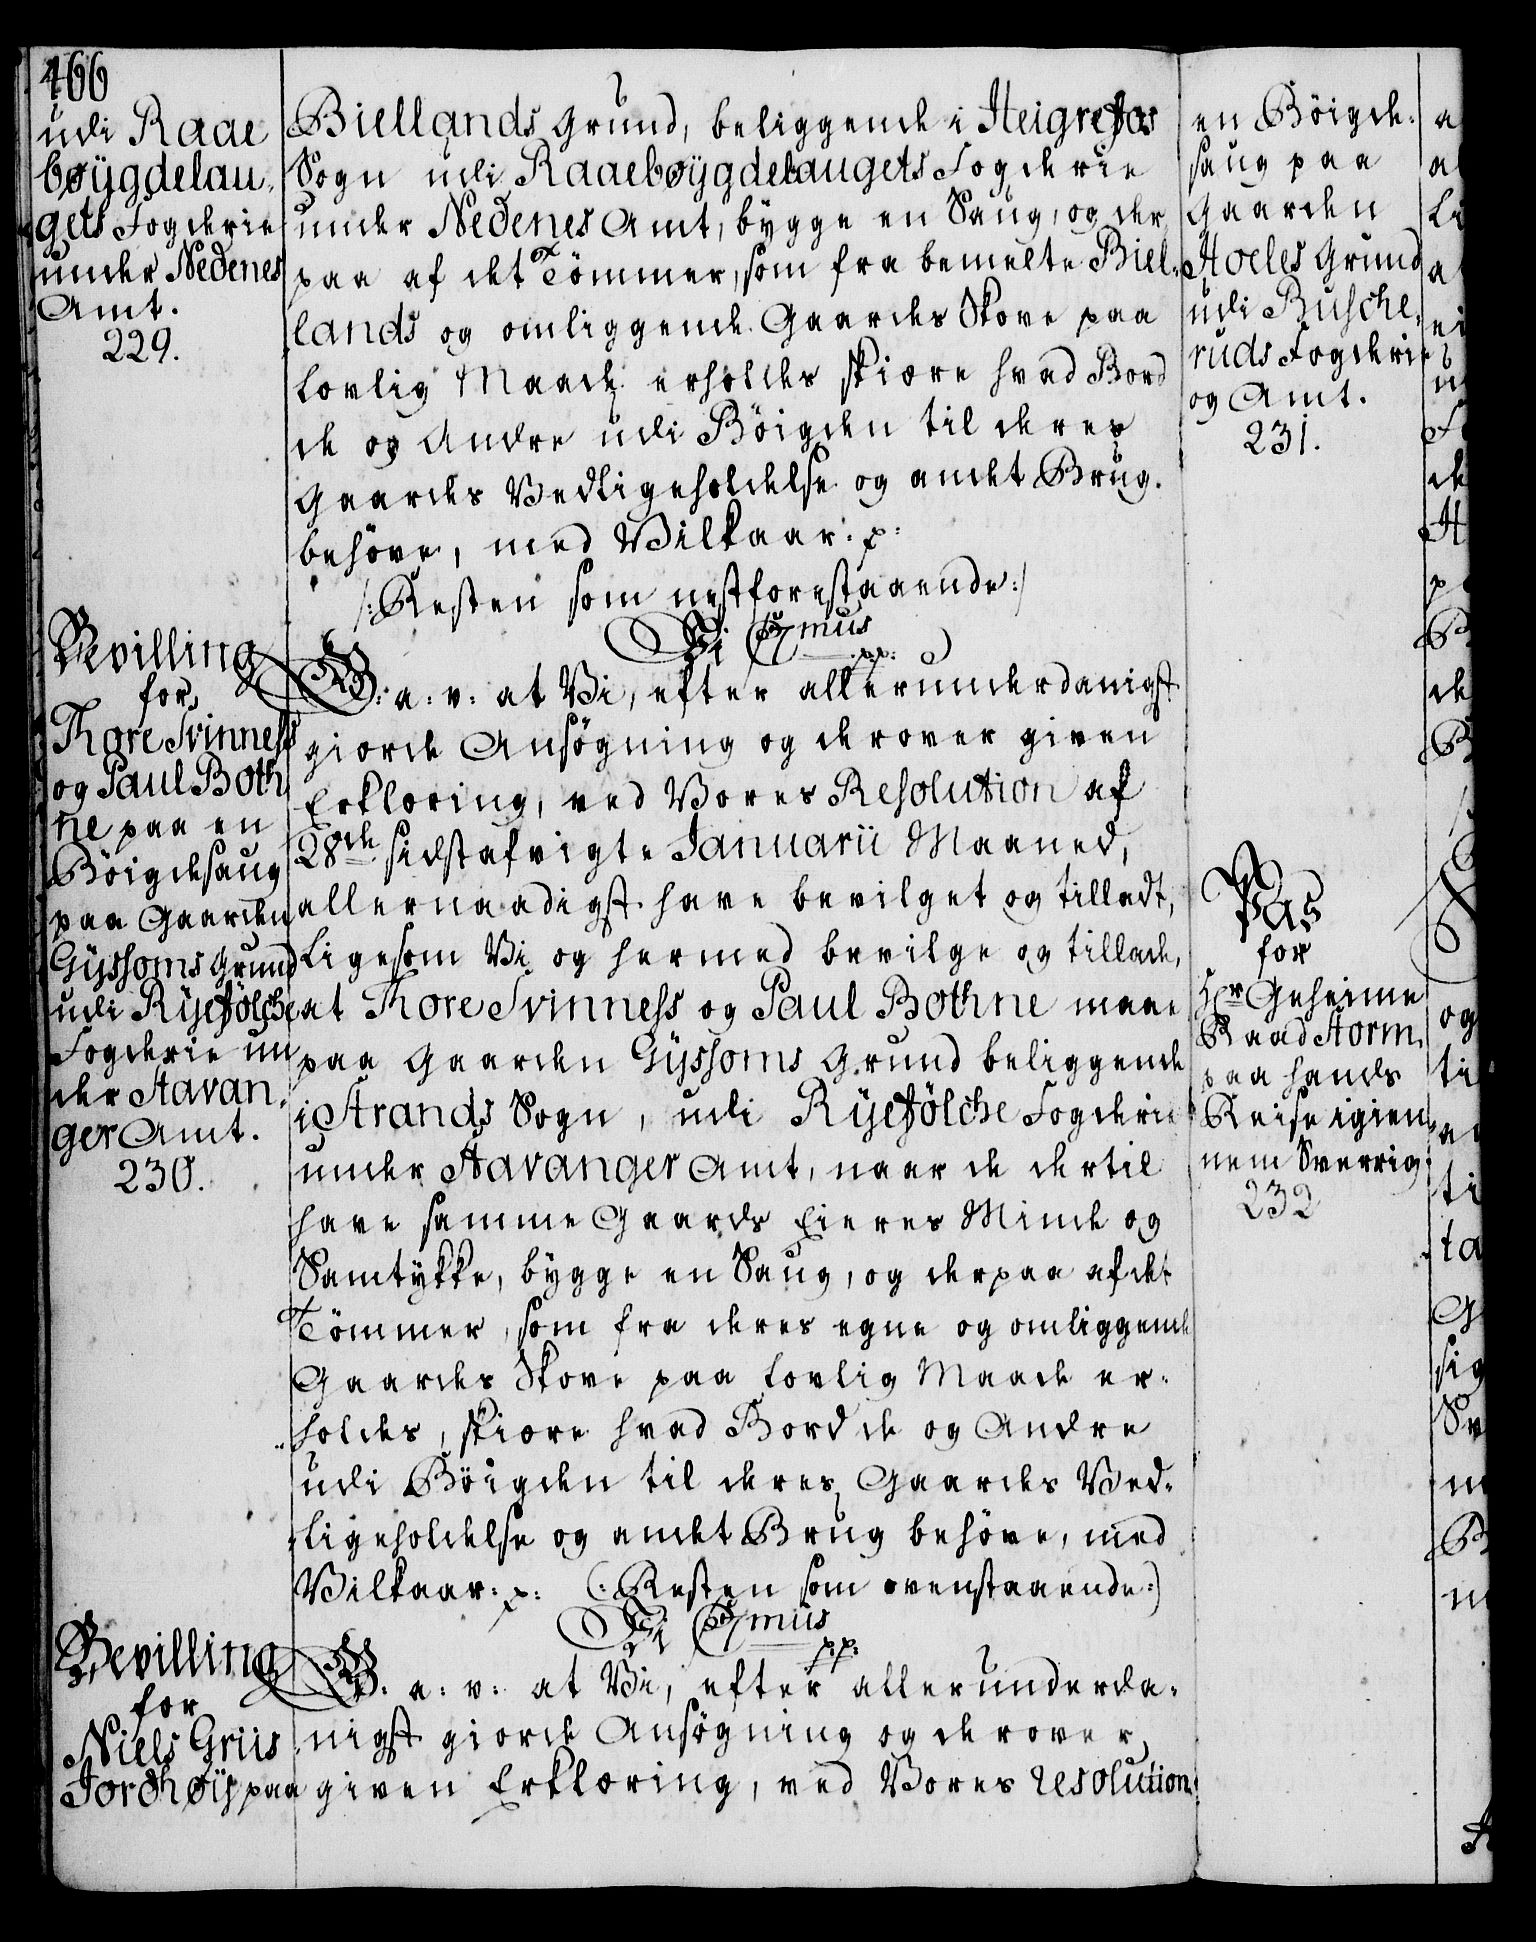 466
udi Raae
bøÿgdelau-
gets Fogderie
under Nedenes
Amt.
229.
Biellands Grund, beliggende i Heigrefos
Sogn udi Raaebøÿgdelaugets Fogderie
under Nedenes Amt, bygge en Saug, og der
paa af det Tömmer, som fra bemelte Biel-
lands og omliggende Gaardes Skove paa
lovlig Maade erholdes skiære hvad Bord
de og Andre udi Böigden til deres
Gaardes Vedligeholdelse og andet Brug
behöve, med Vilkaar. p:
/: Resten som nestforestaaende :/
Bevilling
for
Thore Svinness
og Paul Both
ne paa en
Böigdesaug
paa Gaarden
Gÿssoms Grund
udi Rÿefölche
Fogderie un
der Stavan-
ger Amt.
230.
Vi C7mus
p.p:
G: a: v: at Vi, efter allerunderdanigst
giorde Ansögning og derover given
Erklæring, ved Vores Resolution af
28de sidstafvigte Januarii Maaned,
allernaadigst have bevilget og tilladt,
ligesom Vi og hermed bevilge og tillade,
at Thore Svinness og Paul Bothne maae
paa Gaarden Gÿssoms Grund beliggende
i Strands Sogn, udi Rÿefölche Fogderie
under Stavanger Amt, naar de dertil
have samme Gaards Eieres Minde og
Samtykke, bygge en Saug, og derpaa af det
Tömmer, som fra deres egne og omliggende
Gaardes Skove paa lovlig Maade er-
holdes, skiære hvad Bord de og Andre
udi Böigden til deres Gaardes Ved-
ligeholdelse og andet Brug behöve, med
Vilkaar. p: (: Resten som ovenstaaende :)
Bevilling
for
Niels Griis
Jordhøÿ paa
Vi C7mus
p.p:
G: a: v: at Vi, efter allerunderda-
nigst giorde Ansögning og derover
given Erklæring, ved Vores resolution
en Böigde-
saug paa
Gaarden
Hoeles Grund
udi Busche-
ruds Fogderie
og Amt.
231.
Pas
for
Hr Geheime
Raad Storm
paa hands
Reise igien-
nem Sverrig.
232